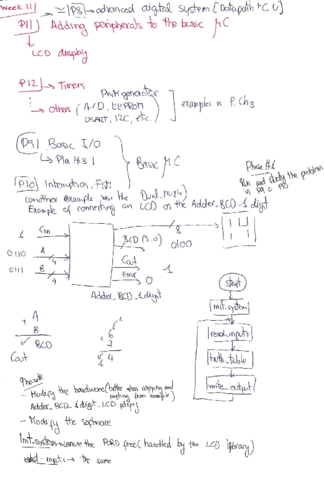 Week 11
≃ P8 → advanced digital system [Datapath + C U]
P11 Adding peripherals to the basic μC
↳ LCD display
P12 → Timers
⋮ → Others (A/D, EEPROM
USART, I2C, etc.
examples in P. Ch3
P9 Basic I/O
Basic μC
P10 Interruption, FSM
Phase #1
Run and study the problem
(another example was the Dual_MUX4)
Example of connecting an LCD on the Adder_BCD_1digit
1 Cin
8
0110 A 4
BCD (3..0)
0100
0111 B 4
Cout 1
0
Adder_BCD_1digit
Start
init_system
read_inputs
truth_table
write_output
+ A
B
BCD
Cout
1
6
7
1 4
- Modify the hardware (better when copying and
Adder_BCD_1digit_LCD.pdsprj
- Modify the software
Init_system → leave the PORD free (handled by the LCD library)
read_inputs → the same